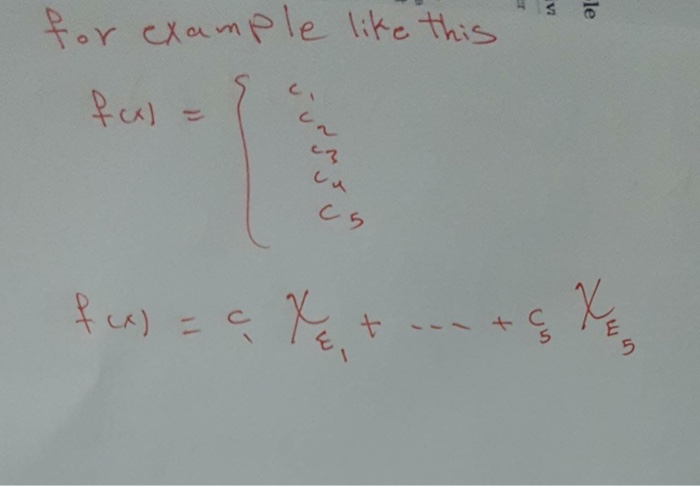 for example like this
f(x) = { c₁
c₂
c₃
c₄
c₅
f(x) = c₁ χ_E₁ + --- + c₅ χ_E₅
le